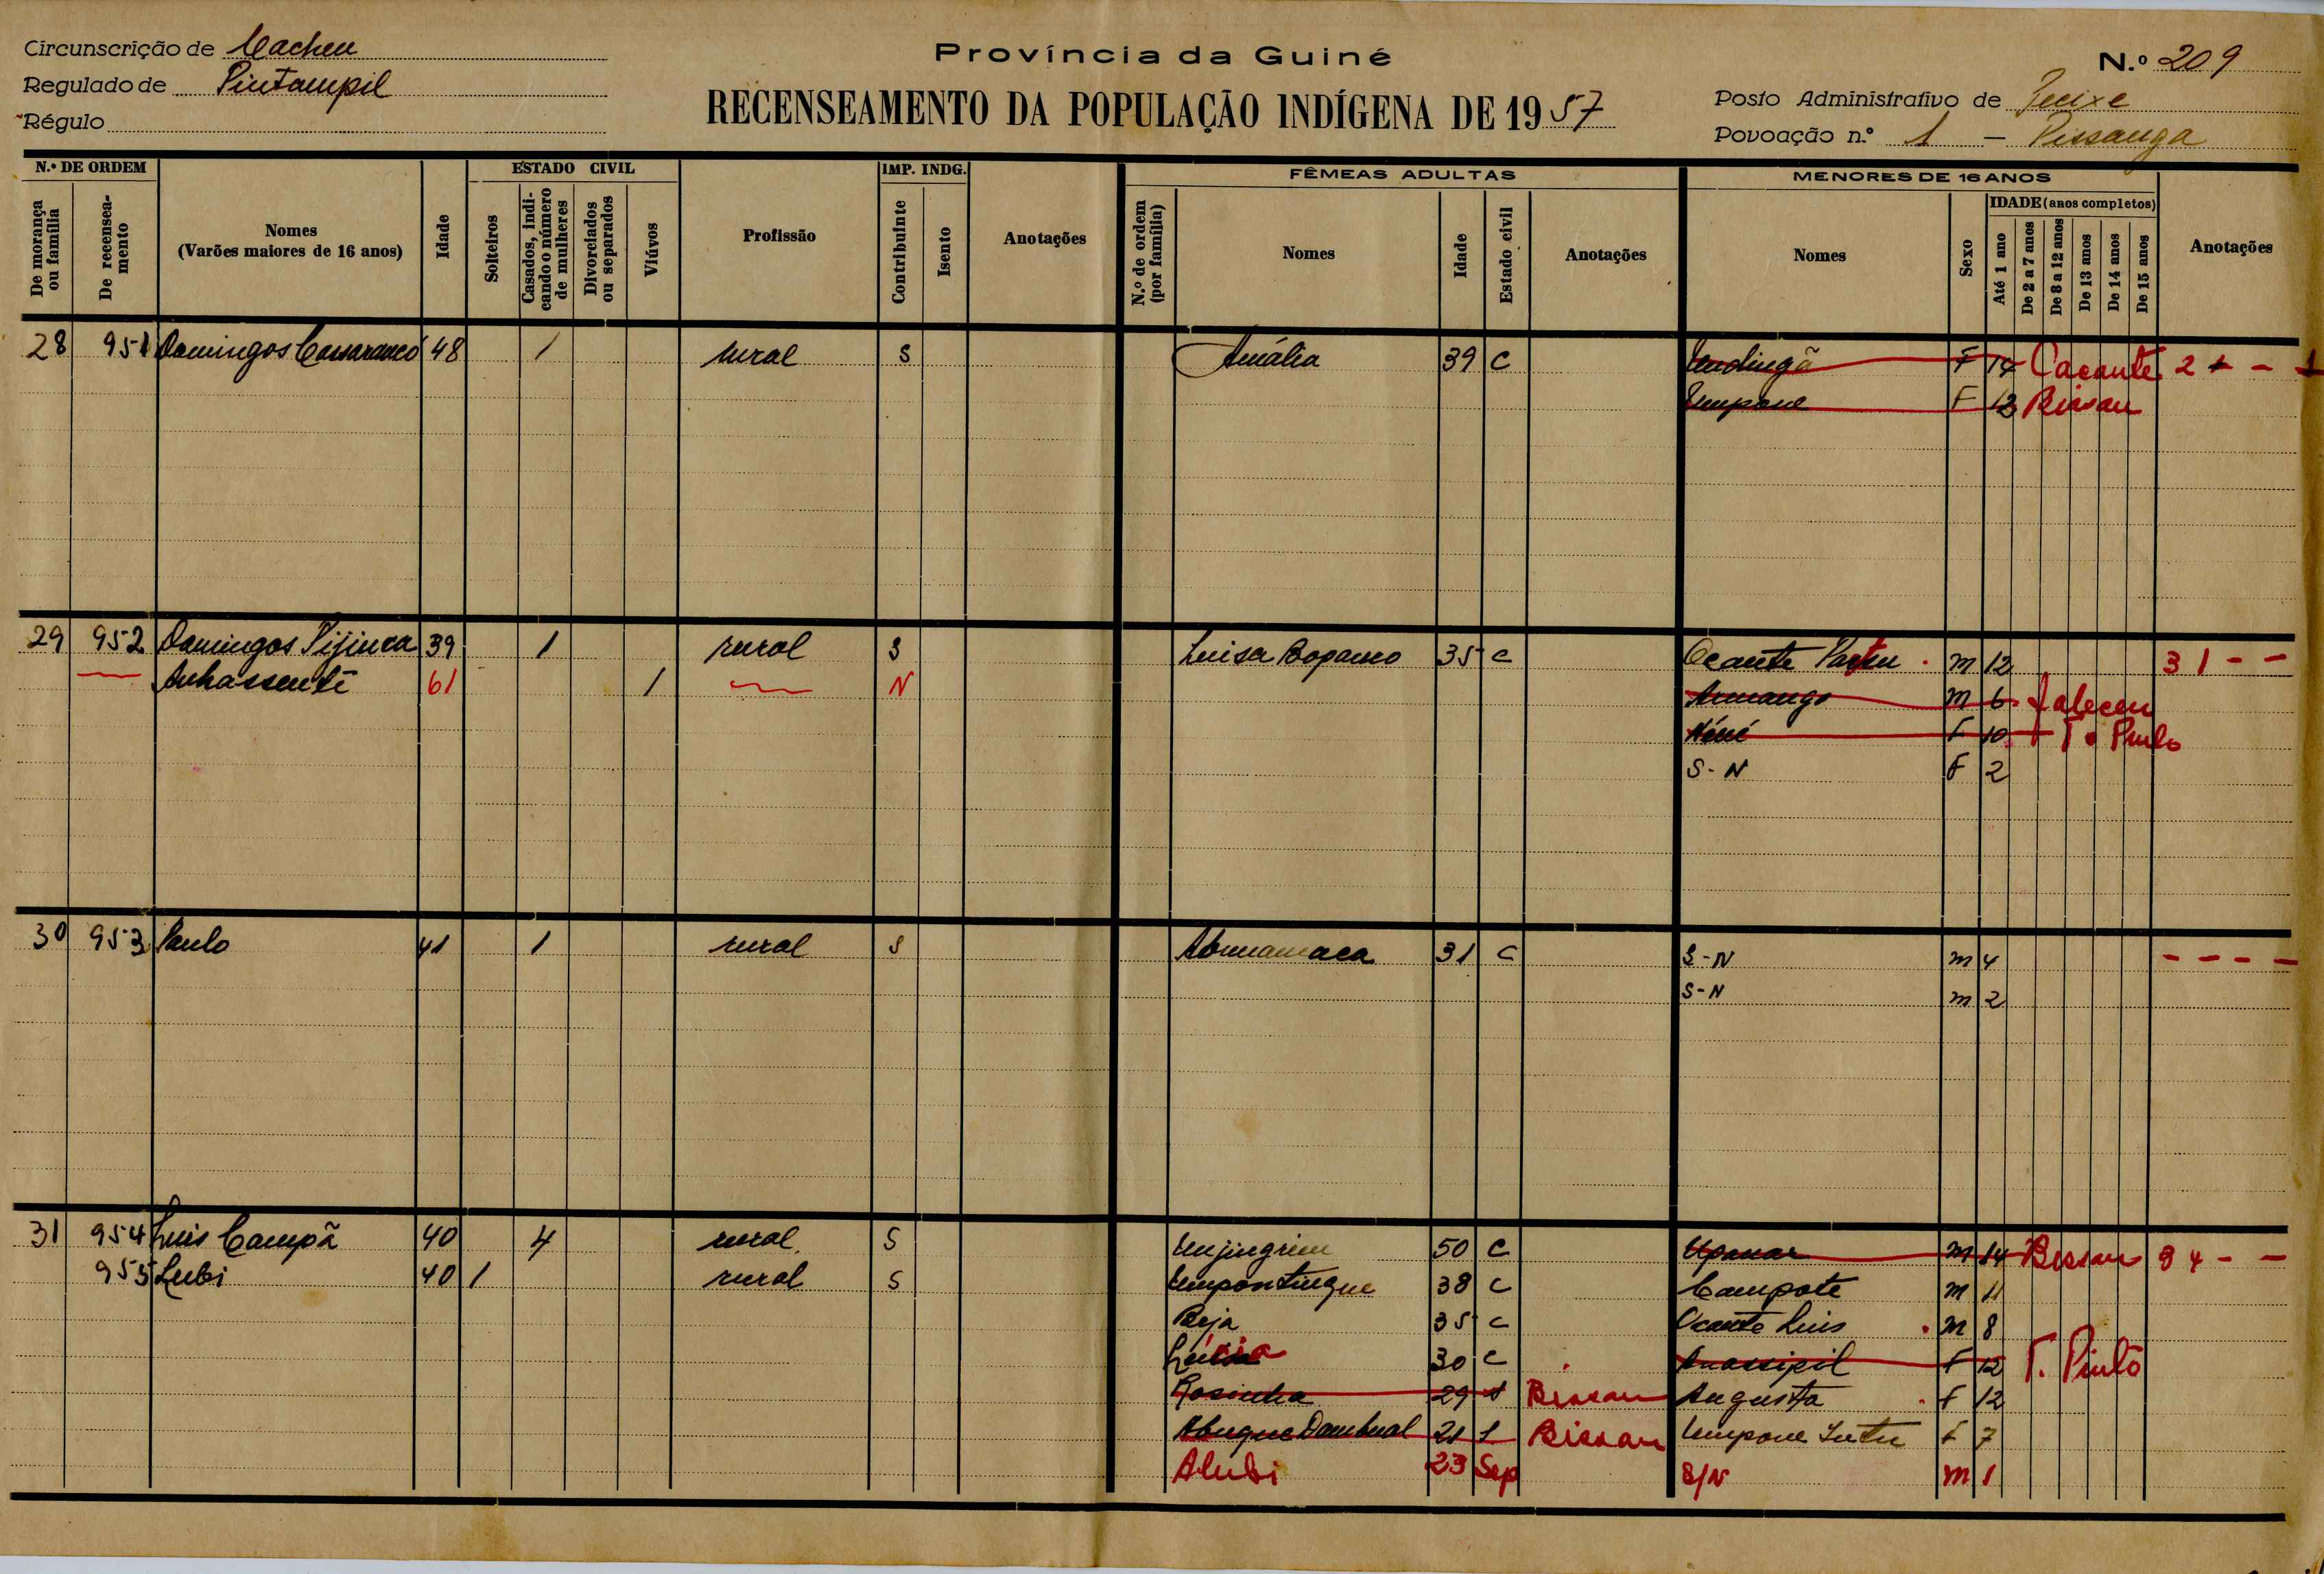 Circunscrição de Cacheu
Regulado de Pintampil
Régulo
Província da Guiné
RECENSEAMENTO DA POPULAÇÃO INDÍGENA DE 1957
N.º 209
Posto Administrativo de
Povoação n.º 1 - Pissanga
N.º DE ORDEM
De morança ou família
De recenseamento
Nomes
(Varões maiores de 16 anos)
Idade
ESTADO CIVIL
Solteiros
Casados, indicando o número de mulheres
Divorciados ou separados
Viúvos
Profissão
IMP. INDG.
Contribuinte
Isento
Anotações
FÊMEAS ADULTAS
N.º de ordem (por família)
Nomes
Idade
Estado civil
Anotações
MENORES DE 16 ANOS
Nomes
Sexo
IDADE (anos completos)
Até 1 ano
De 2 a 7 anos
De 8 a 12 anos
De 13 anos
De 14 anos
De 15 anos
Anotações
28 951 Domingos 48 1 rural S Amália 39 C F 14 Cacante 2
Umpone F 12 Bissau
29 952 Domingos Pijinca 39 1 rural S Luisa 35 C Ocante m 12 3 1 - -
61 1 N m 6 faleceu
F 10
S-N F 2
30 953 Paulo 41 1 rural S 31 C S-N m 4 - - - -
S-N m 2
31 954 Luis Campã 40 4 rural S 50 C m 14 Bissau 4 - -
955 Lubi 40 1 rural S 38 C Campote m 11
35 C Ocante Luis m 8
30 C F 12 T. Pinto
Rosinha 29 Bissau Augusta F 12
21 Bissau Umpone F 7
Alubi 23 Sep S/N m 1